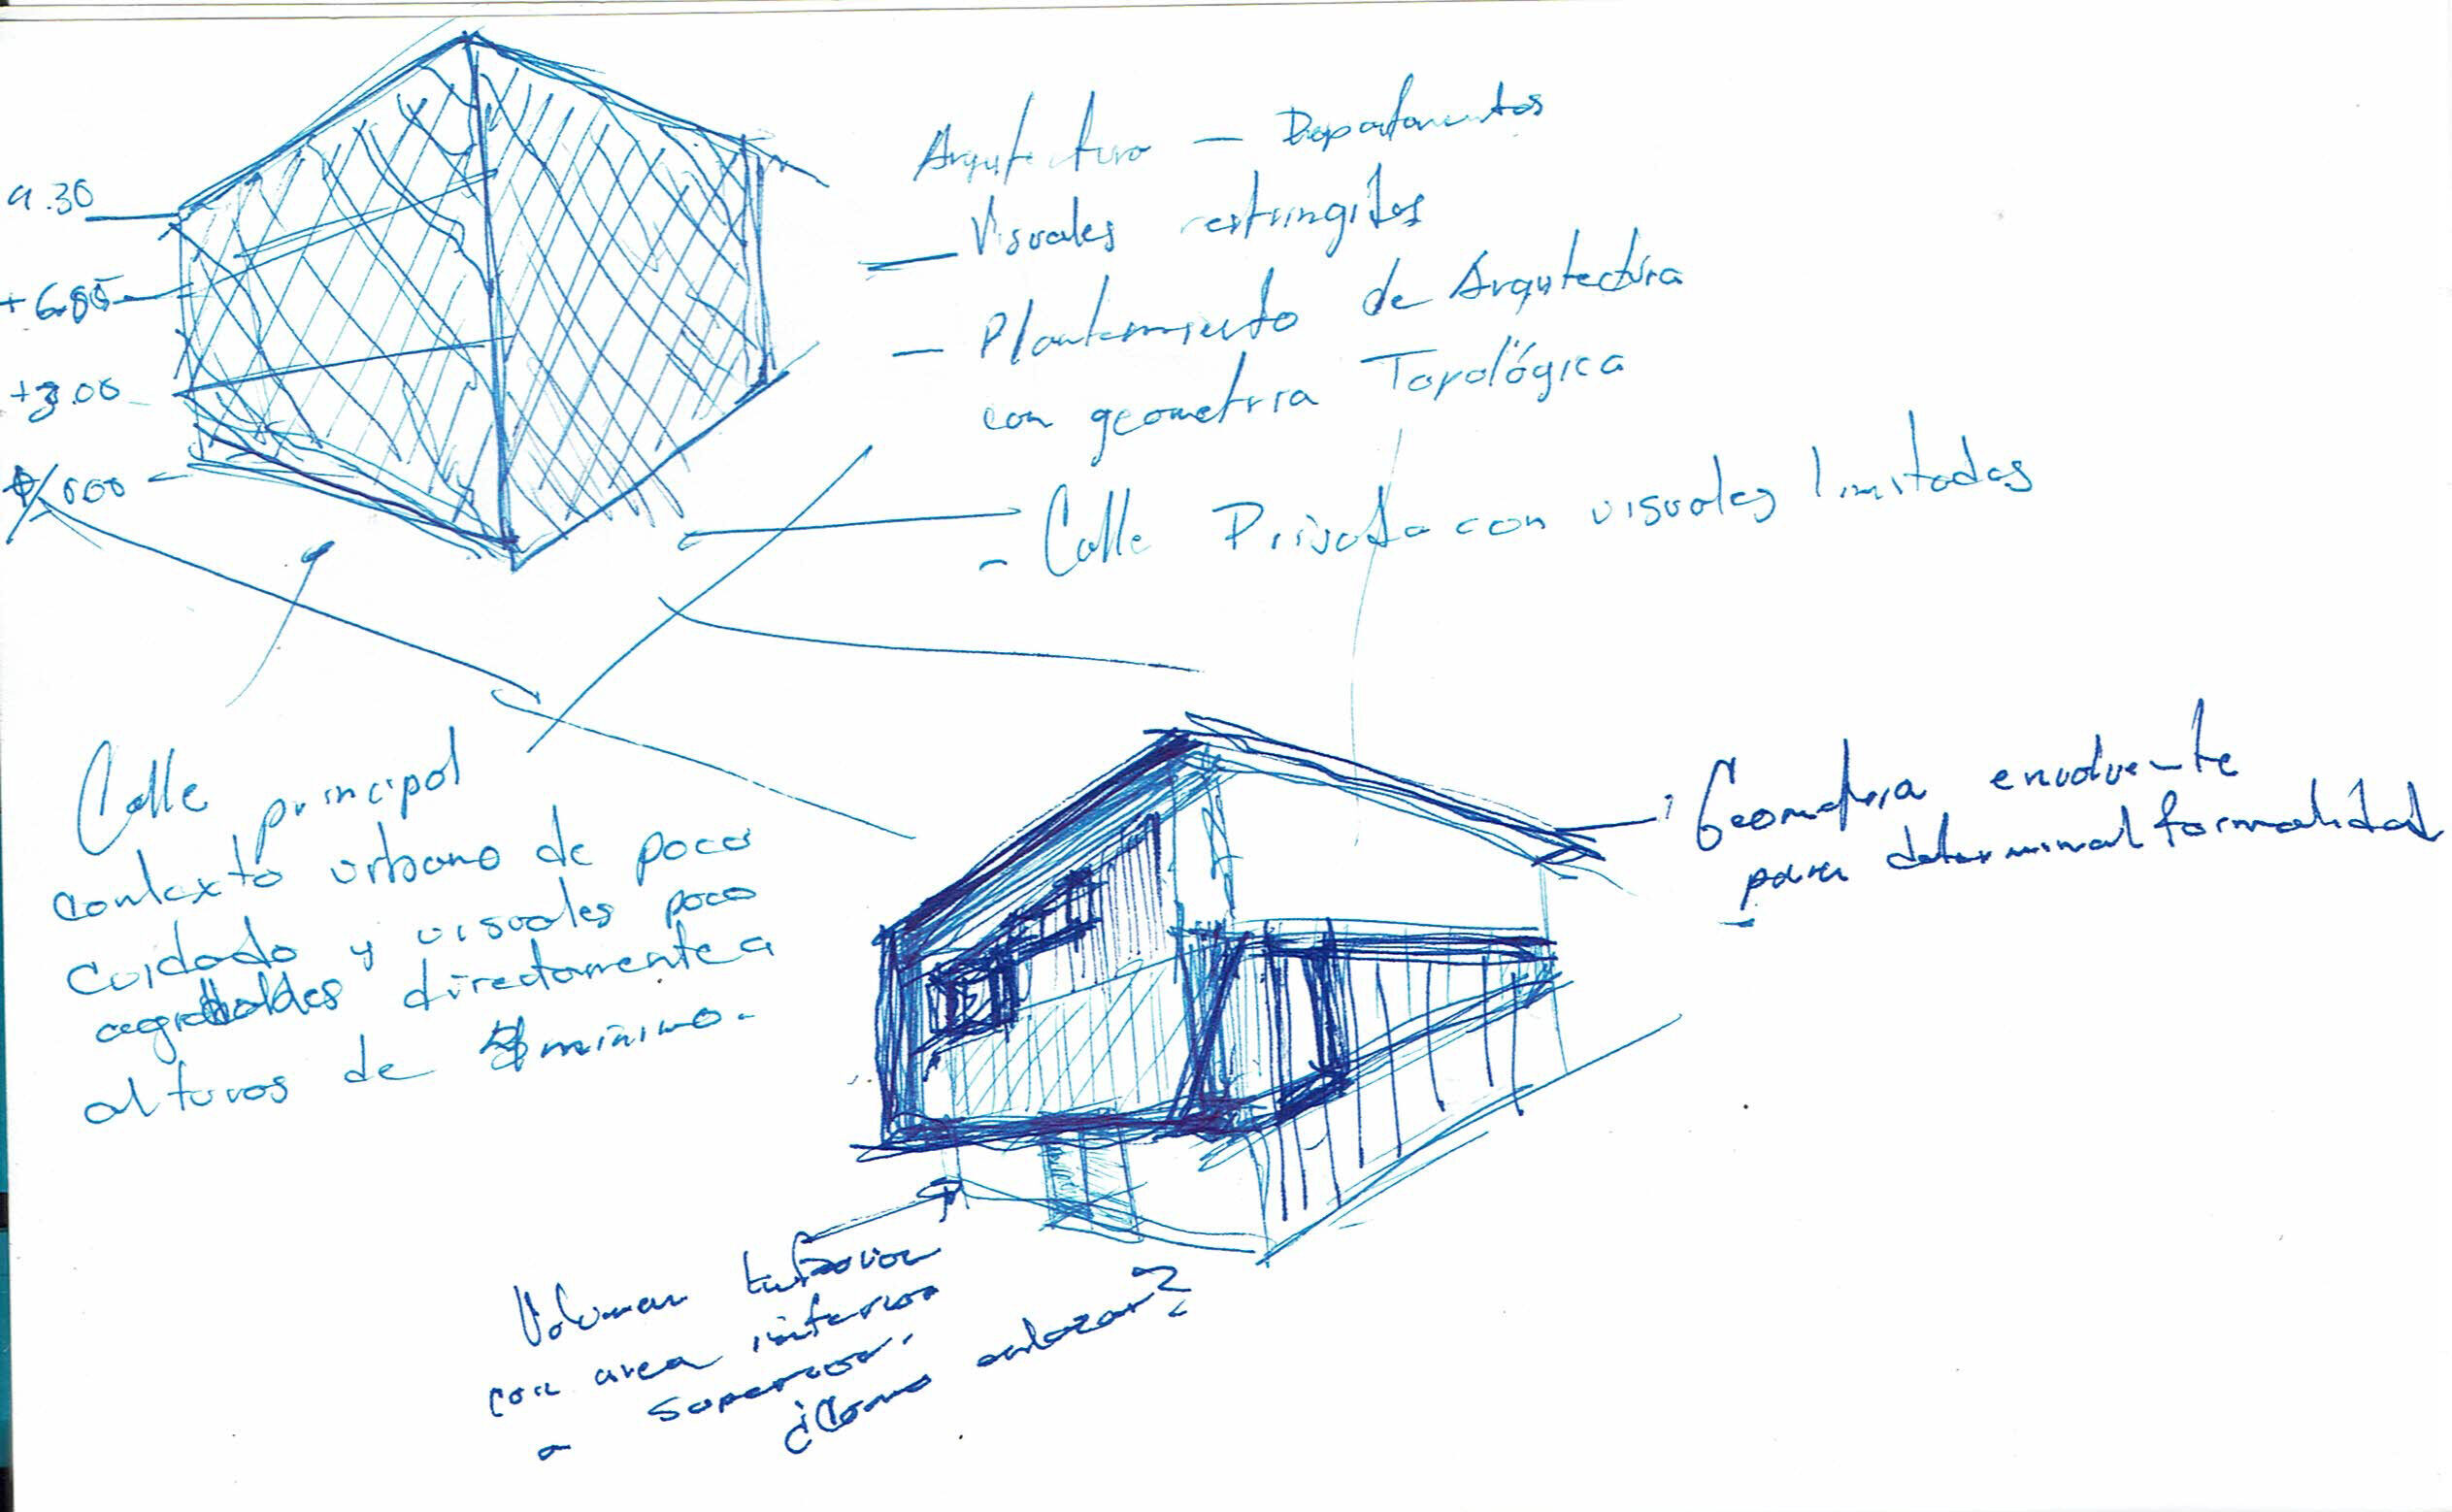 Arquitectura — Departamentos
— Visuales restringidas
— Planteamiento de Arquitectura
con geometria Topológica
- Calle Privada con visuales limitadas
9.30
+6.85
+3.00
0.00
Calle principal
contexto urbano de poco
cuidado y visuales poco
agradables directamente a
alturas de mínimo.
Geometria envolvente
para determinar formalidad
Volumen
con area interior
a superior.
¿Como enlazar?